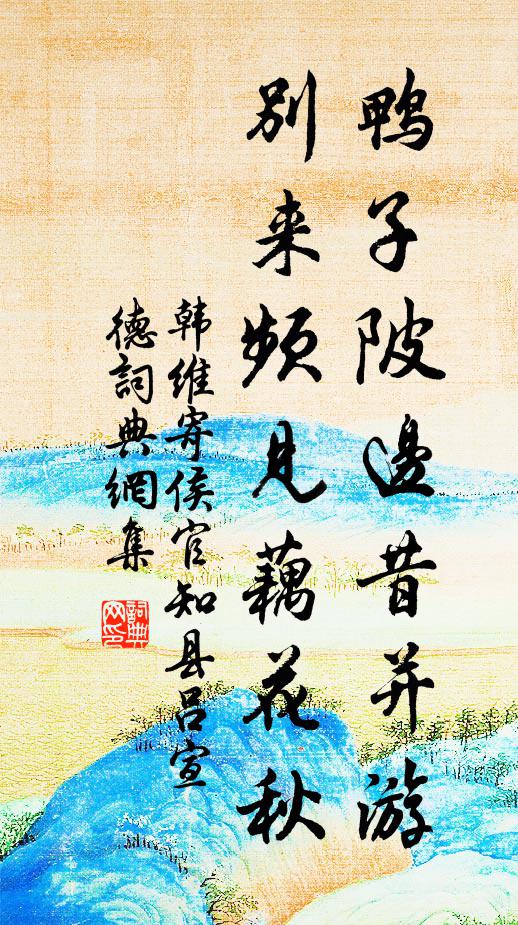 鸭子陂邊昔并游
别来频見藕花秋
韩维寄侯官知县吕宣
德詞典網集
詞典
网印